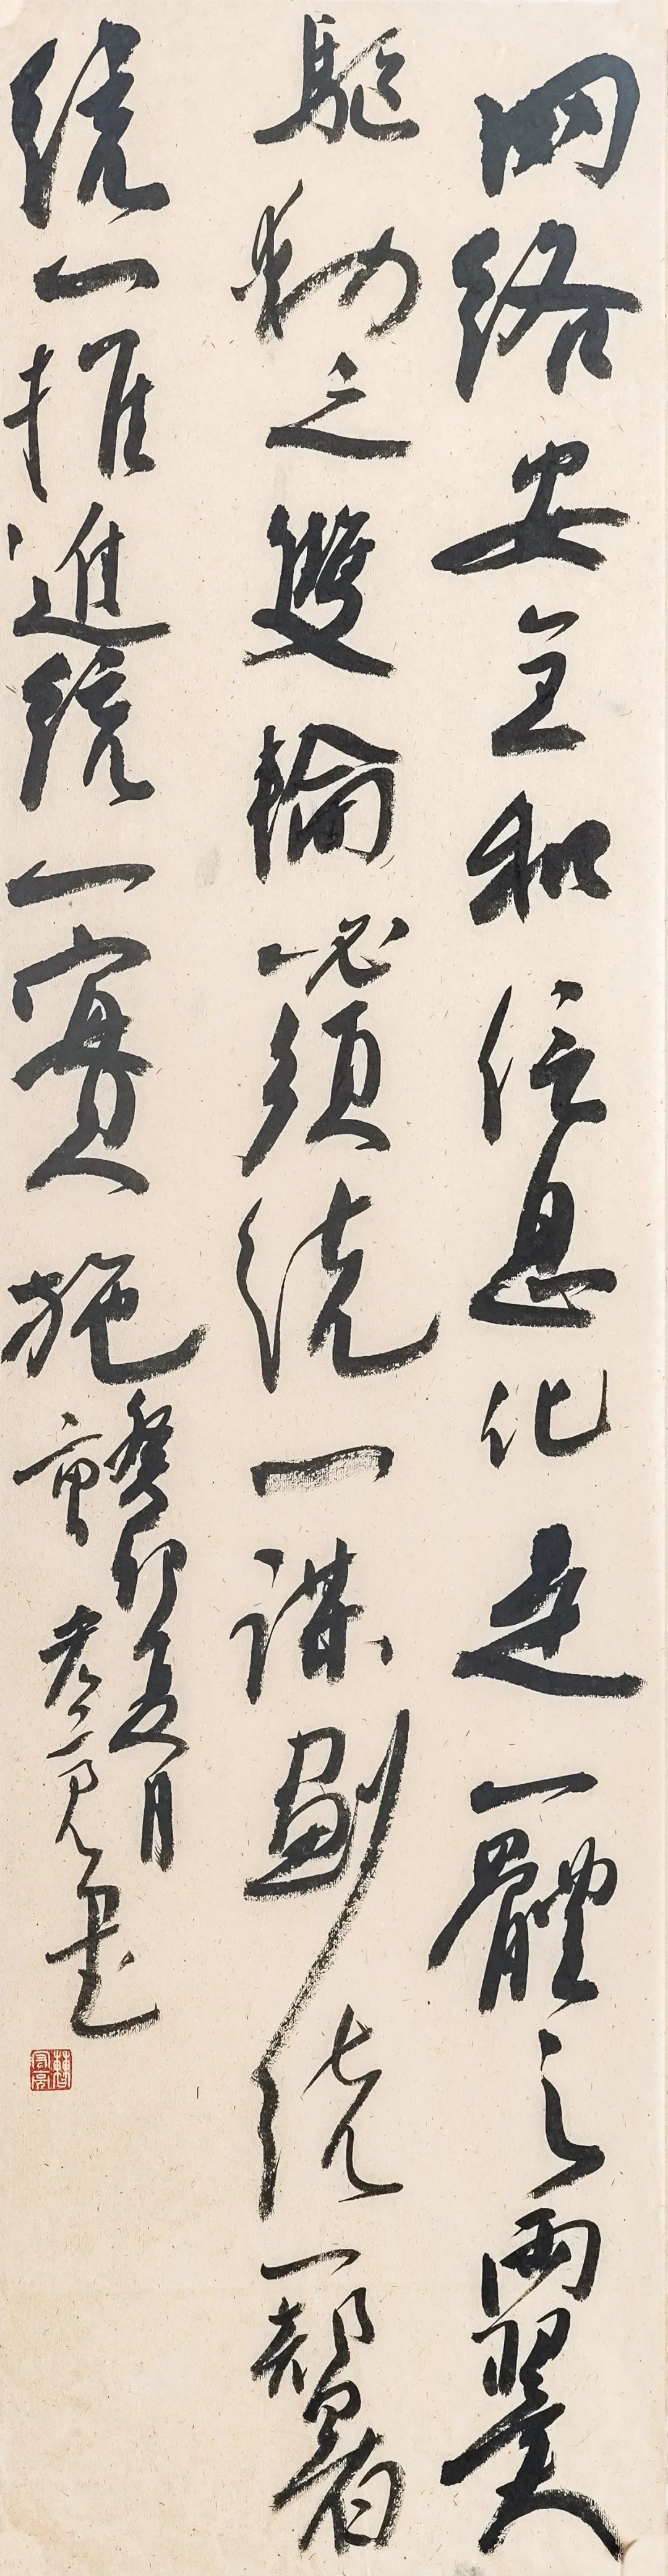 网络安全和信息化是一體之兩翼
驅動之雙輪必須統一謀劃統一部署
統一推進統一實施
癸卯夏月
書